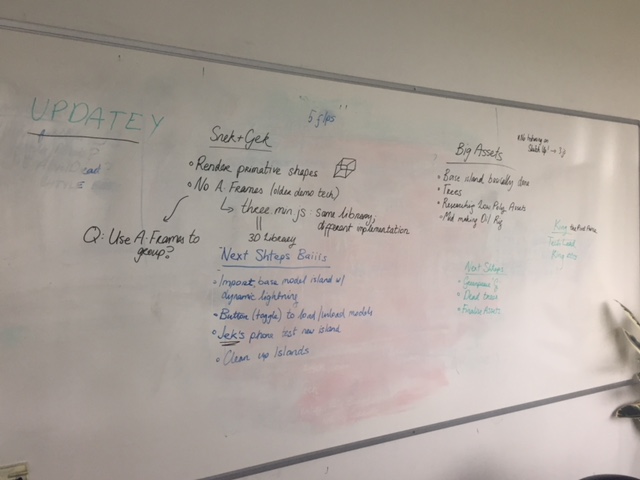 UPDATEY
5 g/ps
Snek + Gek
• Render primative shapes
• No A. Frames (older demo tech)
↳ three.min.js : same library,
different implementation
3D Library
Q: Use A-Frames to
group?
Next Shteps Baiiis
• Import base model island w/
dynamic lightning
• Button (toggle) to load/unload models
• Jek's phone test new island
• Clean up Islands
Big Assets
• Base island basically done
• Trees
• Researching Low Poly Assets
• making Oil Rig
Next Shteps
• Dead trees
• Finalise Assets
Key